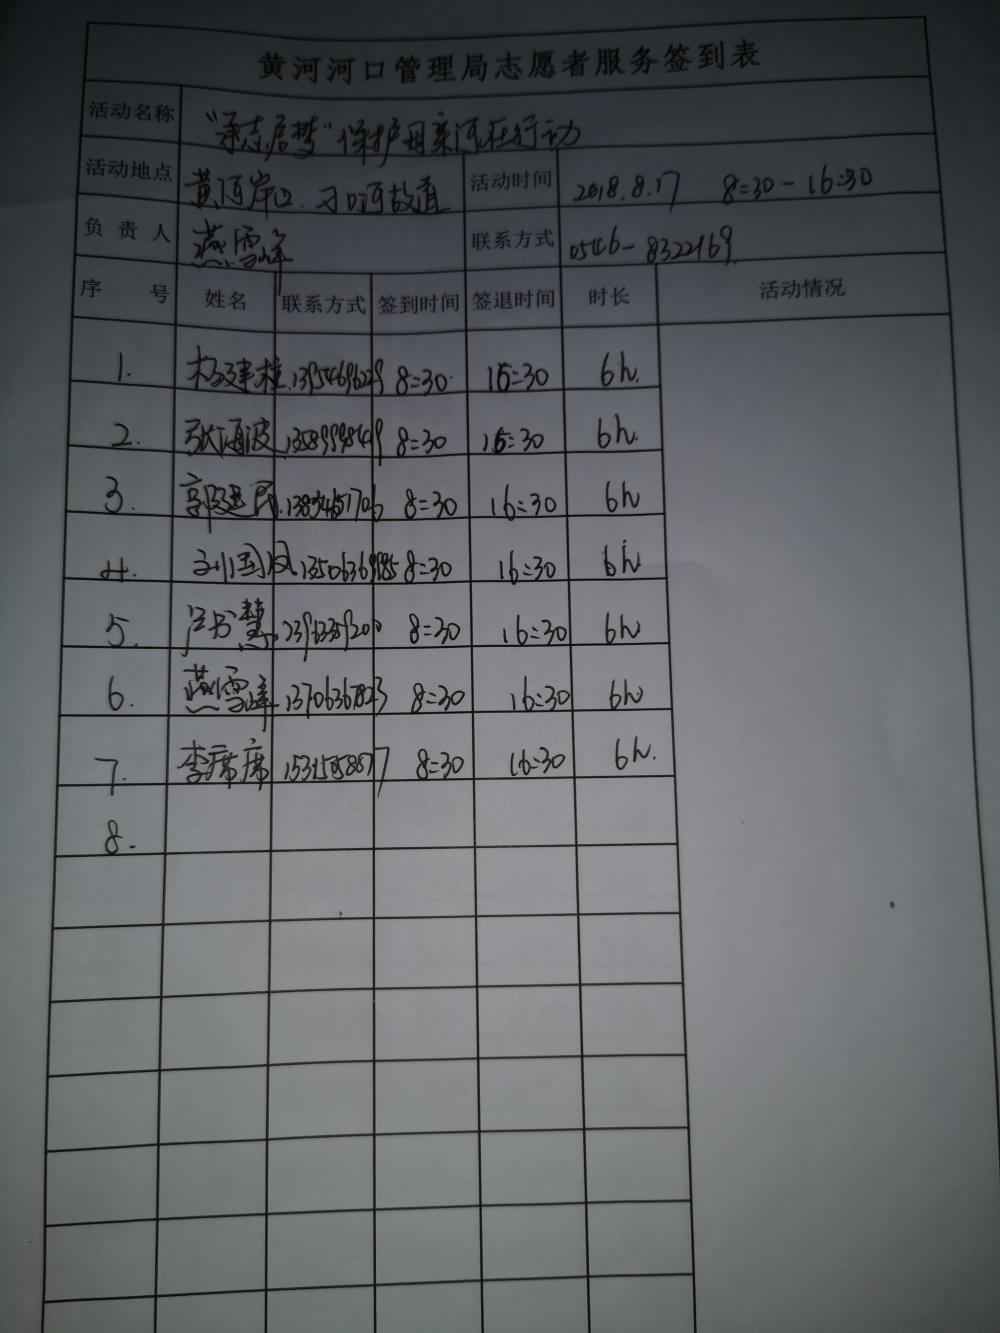 黄河河口管理局志愿者服务签到表
活动名称 "承志启梦"保护母亲河在行动
活动地点 黄河岸边、刁口河故道 活动时间 2018.8.17 8:30-16:30
负责人 燕雪峰 联系方式 0546-8322169
序号 姓名 联系方式 签到时间 签退时间 时长 活动情况
1. 8:30 16:30 6h
2. 张海波 8:30 16:30 6h
3. 郭建民 8:30 16:30 6h
4. 刘国 8:30 16:30 6h
5. 8:30 16:30 6h
6. 燕雪峰 13706367823 8:30 16:30 6h
7. 李席席 8:30 16:30 6h.
8.